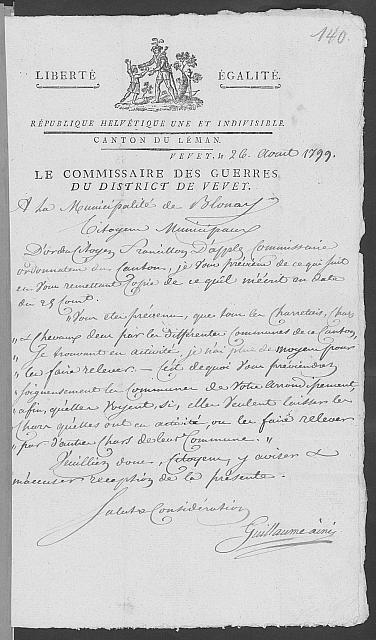 140.
LIBERTÉ ÉGALITÉ.
RÉPUBLIQUE HELVÉTIQUE UNE ET INDIVISIBLE.
CANTON DU LÉMAN.
VEVEY, le 26 Aoust 1799.
LE COMMISSAIRE DES GUERRES
DU DISTRICT DE VEVEY,
A la Municipalité de Blonay
Citoyens Municipaux
D'ordre du Citoyen Francillon D'apples Commissaire
ordonnateur du Canton, je vous préviens de ce qui suit
en vous remettant Copie de ce qu'il m'écrit en date
du 25 Cour.t
"Vous etes prévenu, que tous les Charretiers, Chars
" & Chevaux dem par les différentes Communes de ce Canton,
" Se trouvant en activité, je n'ai plus de moyens pour
" les faire relever. — C'est de quoi vous préviendrez
soigneusement les Communes de Votre Arrondissement,
" afin, qu'elles voyent si, elles veulent laisser les
Chars qu'elles ont en activité, ou les faire relever
" par d'autres Chars de leur Commune. "
Veuillez donc, Citoyens, y aviser &
m'accuser réception de la présente.
Salut & Considération
Guillaume ainé